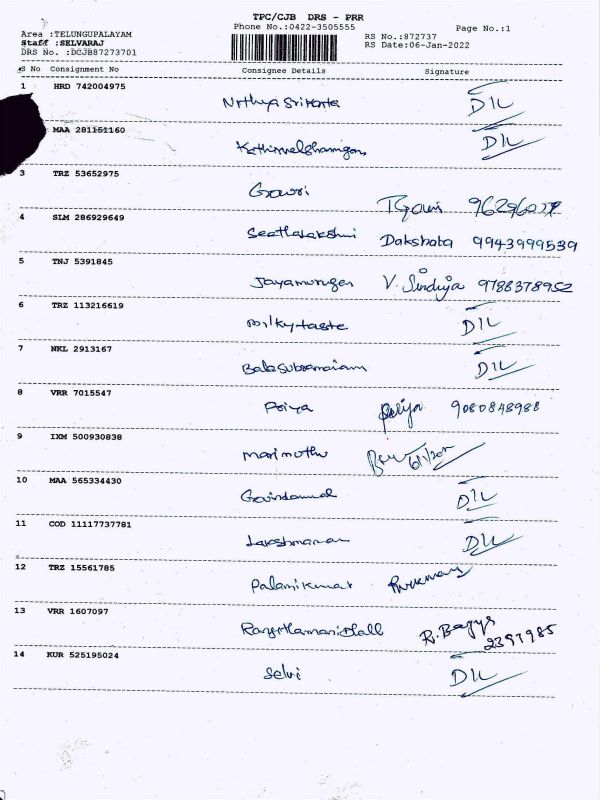 TPC/CJB DRS - PRR
Phone No.:0422-3505555
Page No.:1
Area :TELUNGUPALAYAM
Staff :SELVARAJ
DRS No. :DCJB87273701
RS No.:872737
RS Date:06-Jan-2022
S No Consignment No Consignee Details Signature
1 HRD 742004975
Nithya Srikanta DIL
MAA 281151160
Kathirvelshanmugam DIL
3 TRZ 53652975
Gowri T Gowri
4 SLM 286929649
Seethalakshmi Dakshata 9943999539
5 TNJ 5391845
Jayamurugan V. Sindhja 9788378952
6 TRZ 113216619
milky taste DIL
7 NKL 2913167
Balasubramaiam DIL
8 VRR 7015547
Priya Priya 9080848988
9 IXM 500930838
marimuthu
10 MAA 565334430
Govindammal DIL
11 COD 11117737781
Lakshmanan DIL
12 TRZ 15561785
Palanikumar
13 VRR 1607097
R. Bagya
2397985
14 KUR 525195024
Selvi DIL